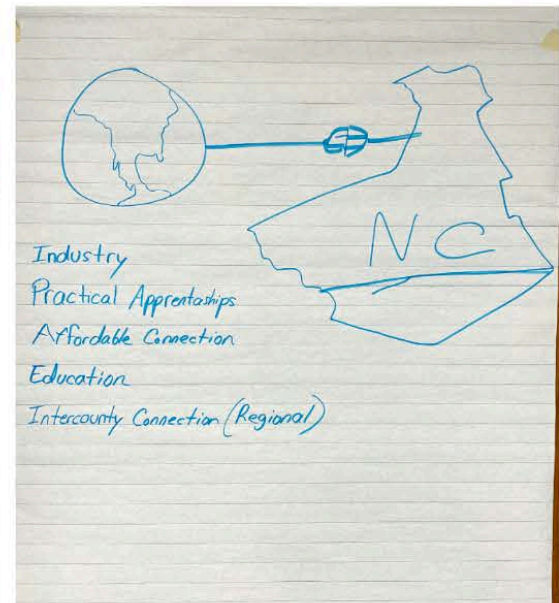 NC
Industry
Practical Apprentaships
Affordable Connection
Education
Intercounty Connection (Regional)